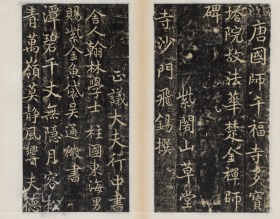 唐國師千福寺多寶
塔院故法華楚金禪師
碑
紫閣山草堂
寺沙門飛錫撰
正議大夫行中書
舍人翰林學士上柱國東海男
賜紫金魚袋吳通微書
潭碧千丈無隱月容松
青萬嶺莫靜風響夫德